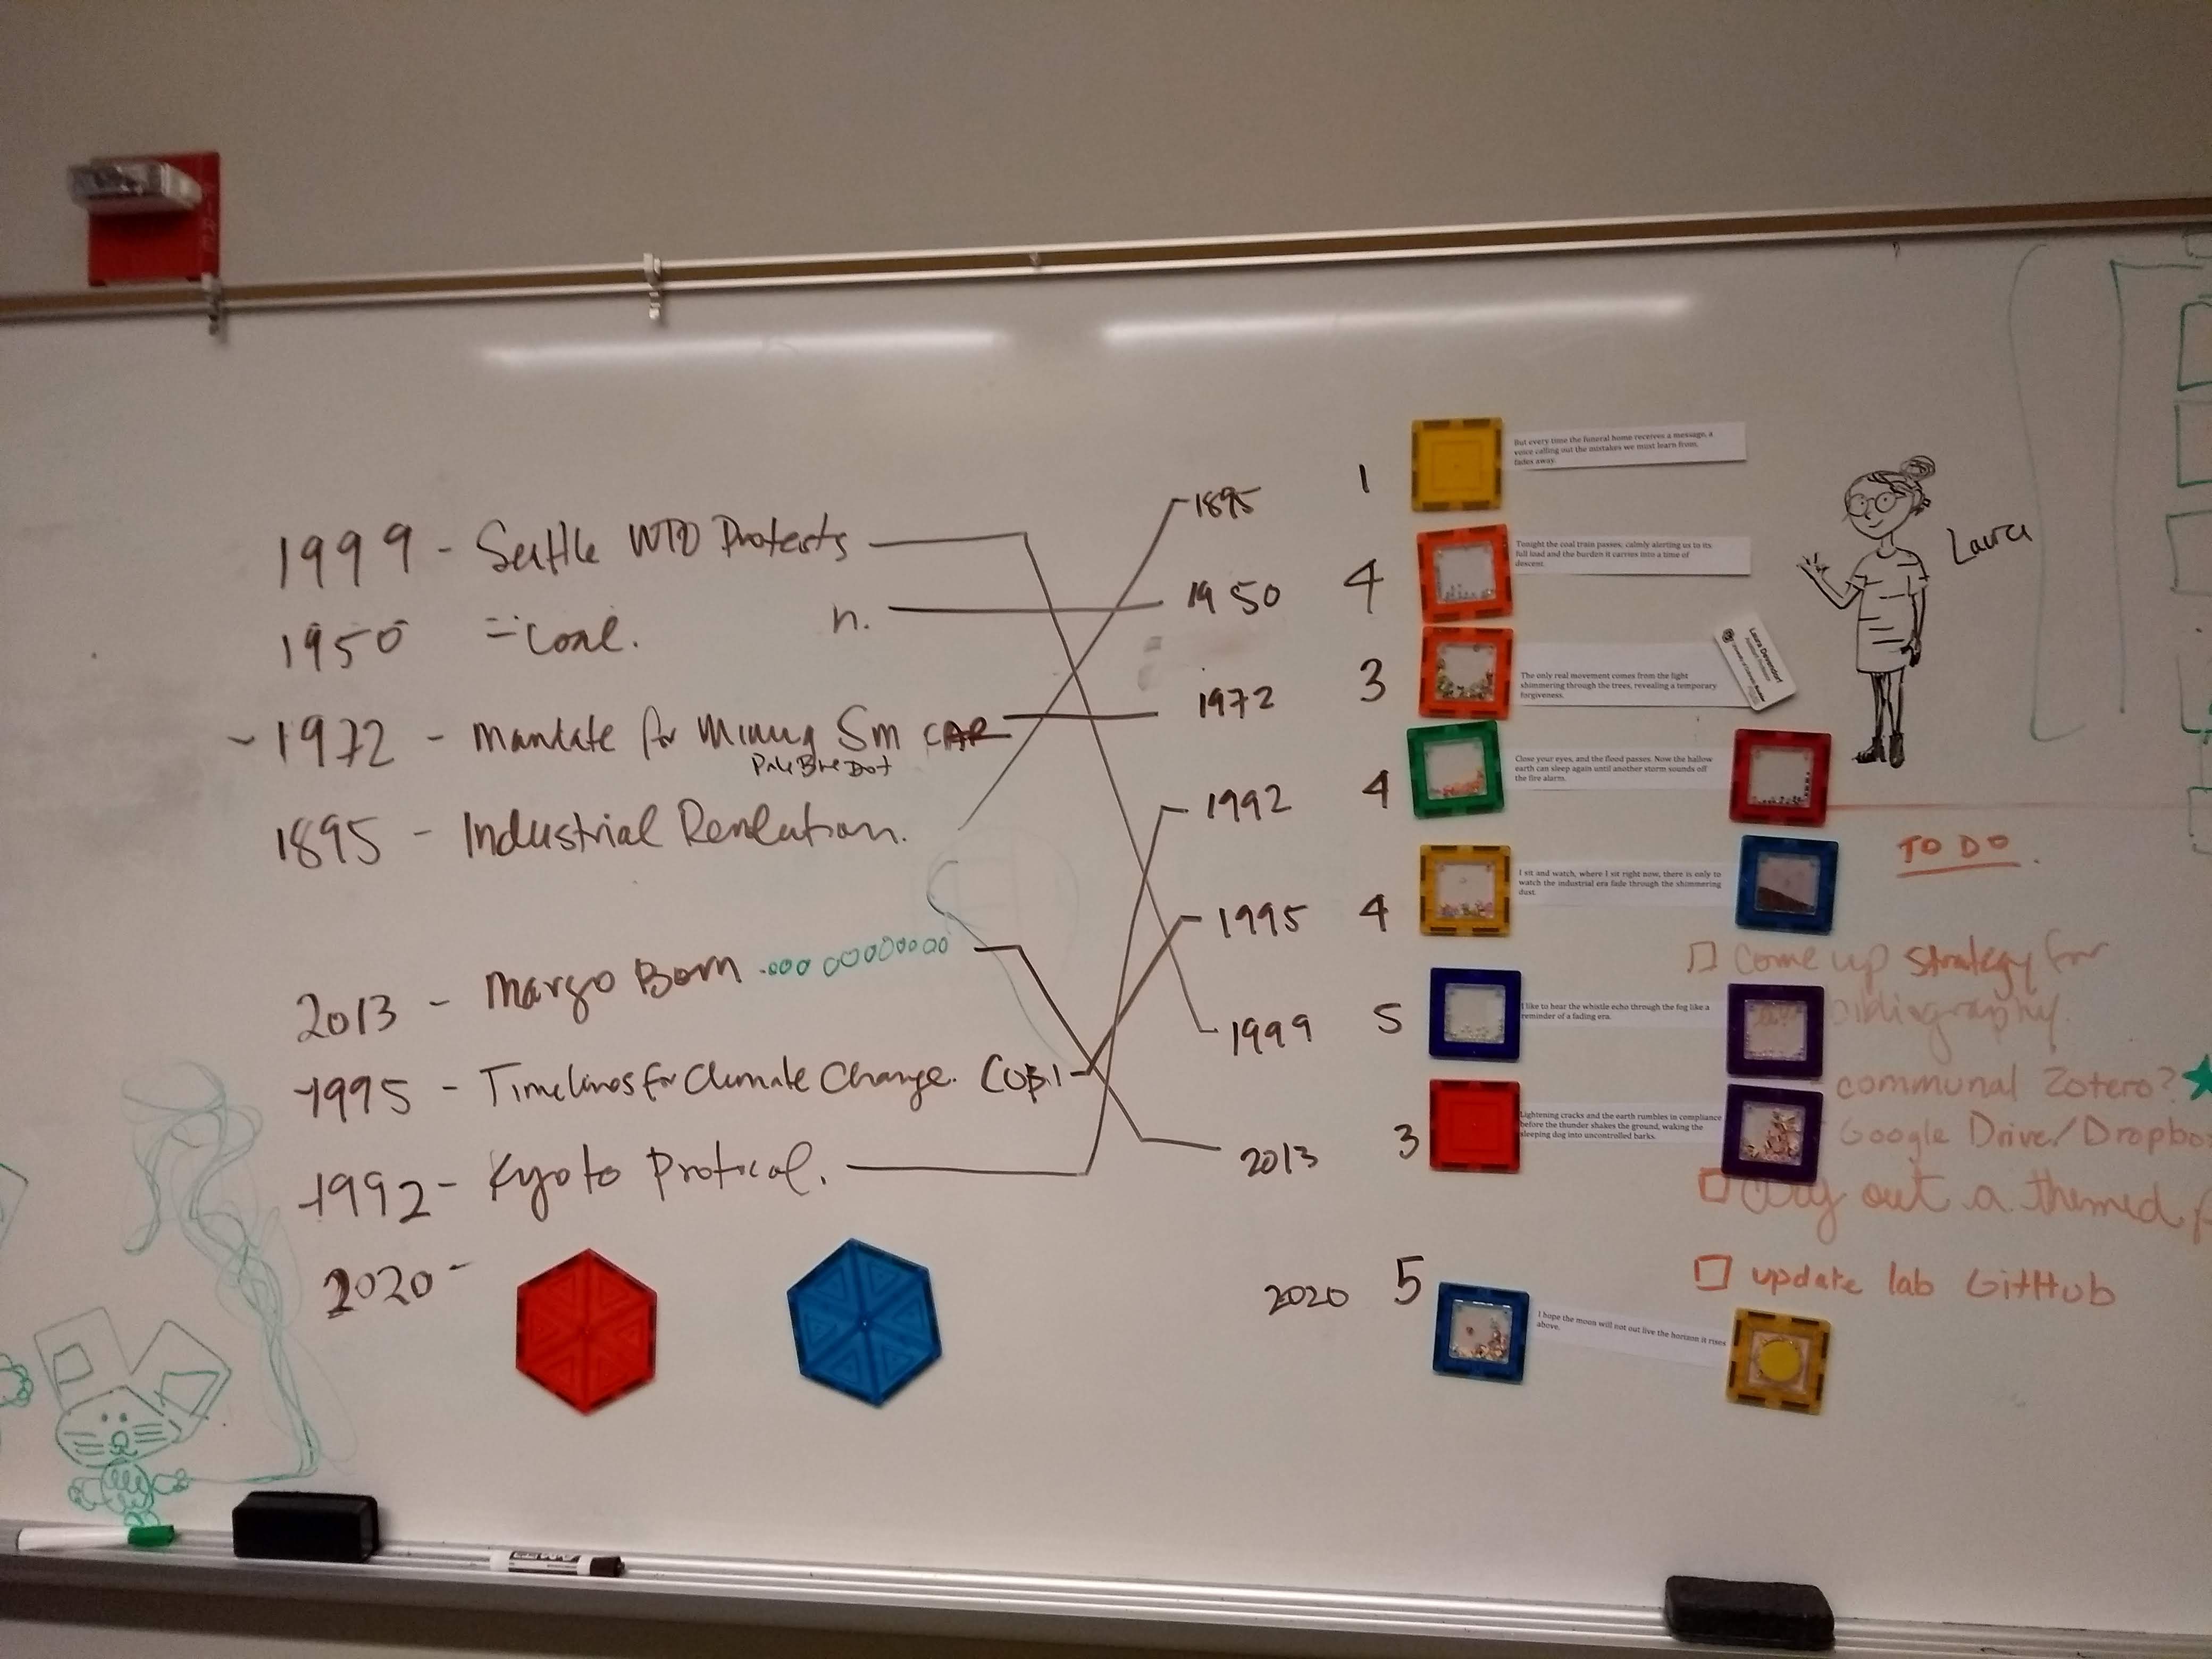 1999 - Seattle WTO Protests
1950 = Coal. n.
- 1972 - Mandate for Mining Sm CAR
Pale Blue Dot
1895 - Industrial Revolution.
2013 - Margo Born
1995 - Timelines for Climate Change. COP.1
1992 - Kyoto Protical.
2020 -
1895
1950
1972
1992
1995
1999
2013
2020
1
4
3
4
4
5
3
5
But every time the funeral home receives a message, a
voice calling out the mistakes we must learn from,
fades away.
Tonight the coal train passes, calmly alerting us to its
full load and the burden it carries into a time of
descent.
The only real movement comes from the light
shimmering through the trees, revealing a temporary
forgiveness.
Close your eyes, and the flood passes. Now the hallow
earth can sleep again until another storm sounds off
the fire alarm.
I sit and watch, where I sit right now, there is only to
watch the industrial era fade through the shimmering
dust.
I like to hear the whistle echo through the fog like a
reminder of a fading era.
Lightening cracks and the earth rumbles in compliance
before the thunder shakes the ground, waking the
sleeping dog into uncontrolled barks.
I hope the moon will not out live the horizon it rises
above.
Laura
Laura Devendorf
TO DO.
come up strategy for
bibliography.
communal Zotero?
Google Drive/Dropbo
out a themed
update lab GitHub